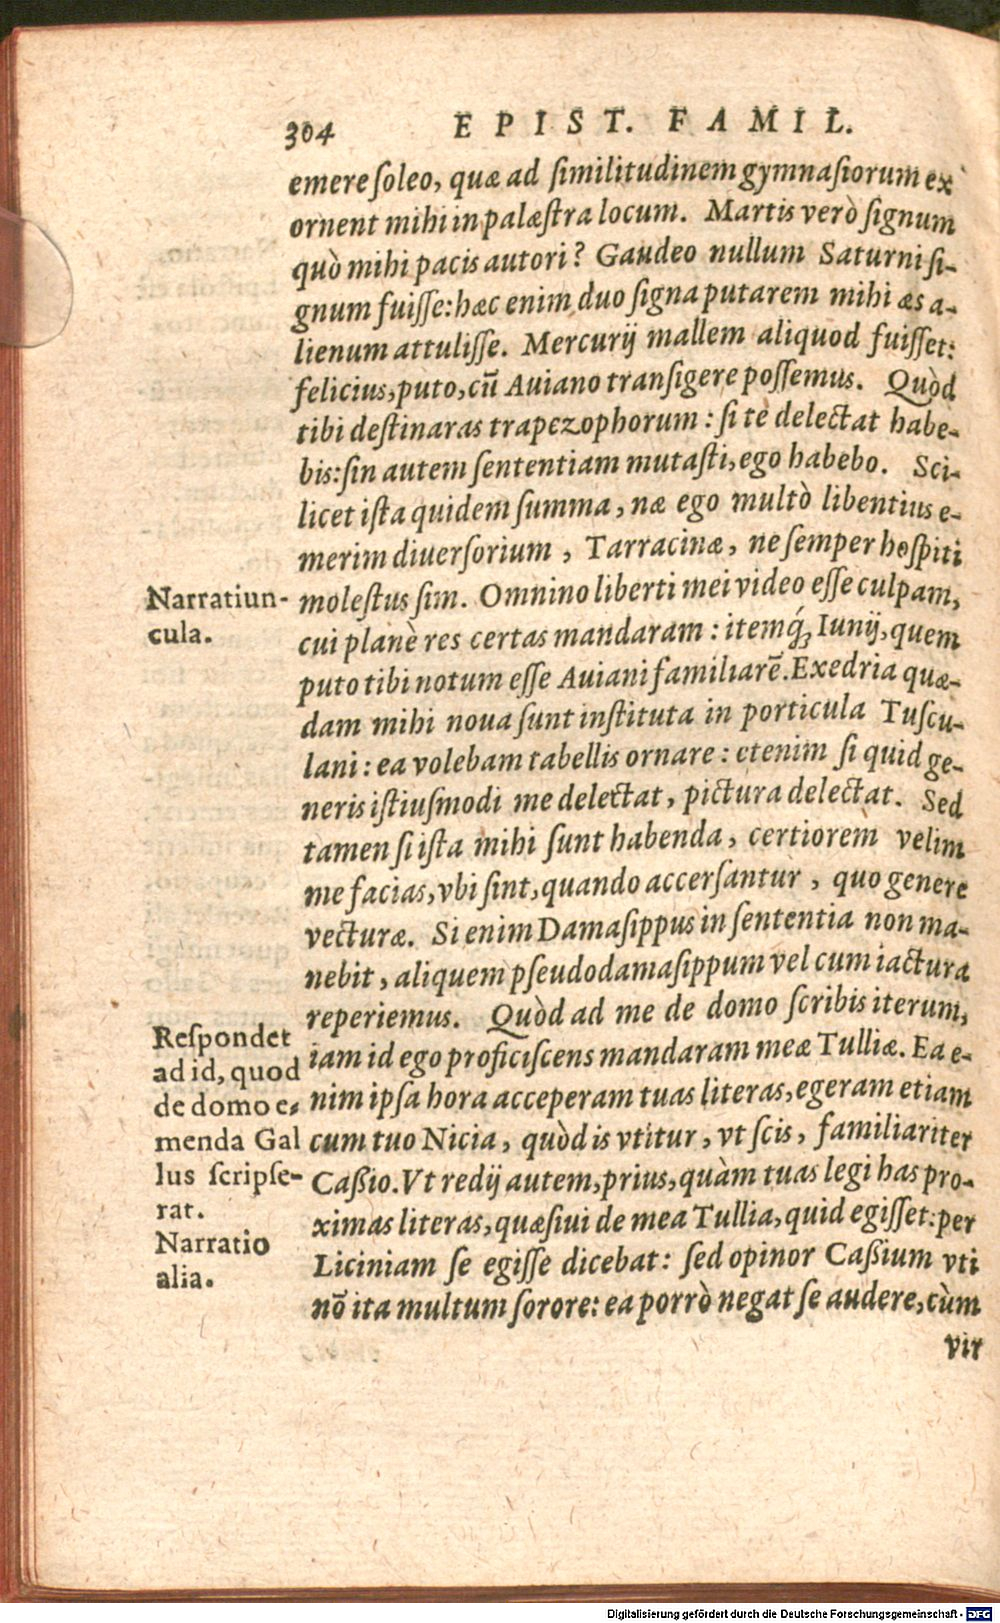 304 EPIST. FAMIL.
emere ſoleo, quæ ad ſimilitudinem gymnaſiorum ex
ornent mihi in palæſtra locum. Martis verò ſignum
quò mihi pacis autori? Gaudeo nullum Saturni ſi-
gnum fuiſſe: hæc enim duo ſigna putarem mihi æs a-
lienum attuliſſe. Mercurij mallem aliquod fuiſſet:
felicius, puto, cū Auiano tranſigere poſſemus. Quòd
tibi deſtinaras trapezophorum: ſi te delectat habe-
bis: ſin autem ſententiam mutaſti, ego habebo. Sci-
licet iſta quidem ſumma, næ ego multò libentius e-
merim diuerſorium, Tarracinæ, ne ſemper hoſpiti
moleſtus ſim. Omnino liberti mei video eſſe culpam,
cui planè res certas mandaram: itemq́; Iunij, quem
puto tibi notum eſſe Auiani familiarē. Exedria quæ-
dam mihi noua ſunt inſtituta in porticula Tuſcu-
lani: ea volebam tabellis ornare: etenim ſi quid ge-
neris iſtiuſmodi me delectat, pictura delectat. Sed
tamen ſi iſta mihi ſunt habenda, certiorem velim
me facias, vbi ſint, quando accerſantur, quo genere
vecturæ. Si enim Damaſippus in ſententia non ma-
nebit, aliquem pſeudodamaſippum vel cum iactura
reperiemus. Quòd ad me de domo ſcribis iterum,
iam id ego proficiſcens mandaram meæ Tulliæ. Ea e-
nim ipſa hora acceperam tuas literas, egeram etiam
cum tuo Nicia, quòd is vtitur, vt ſcis, familiariter
Caßio. Vt redij autem, prius, quàm tuas legi has pro-
ximas literas, quæſiui de mea Tullia, quid egiſſet: per
Liciniam ſe egiſſe dicebat: ſed opinor Caßium vti
nō ita multum ſorore: ea porrò negat ſe audere, cùm
vir
Narratiun-
cula.
Reſpondet
ad id, quod
de domo e-
menda Gal
lus ſcripſe-
rat.
Narratio
alia.
Digitalisierung gefördert durch die Deutsche Forschungsgemeinschaft - DFG